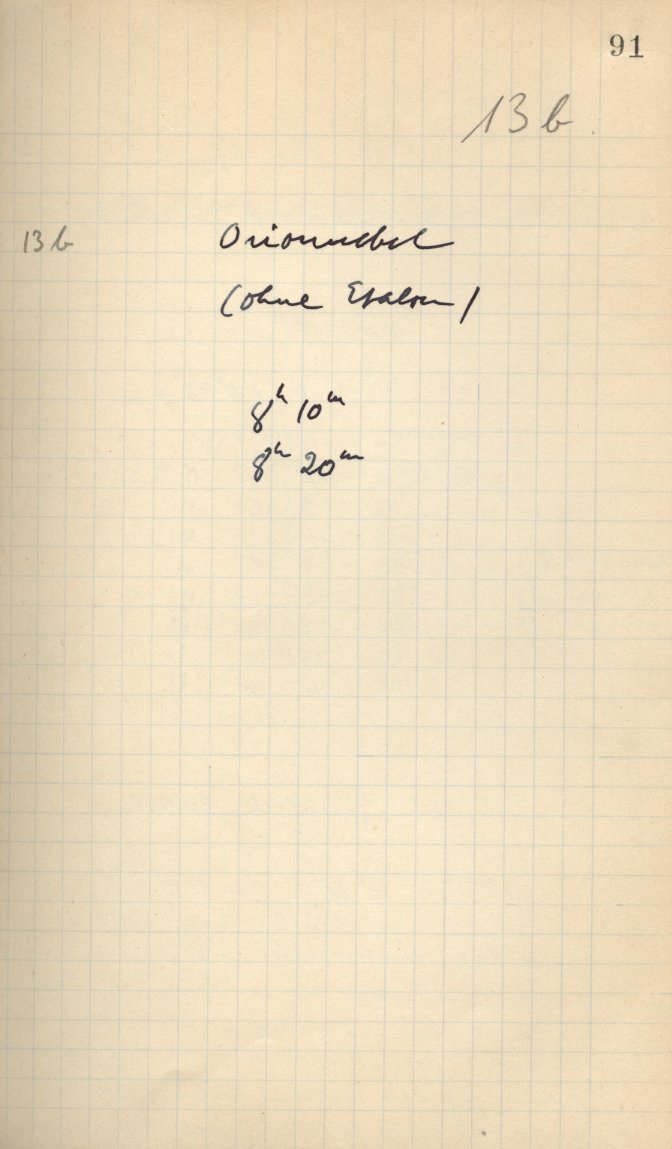 91
13 b
13 b Orionnebel
(ohne Etalon)
8ʰ 10ᵐ
8ʰ 20ᵐ